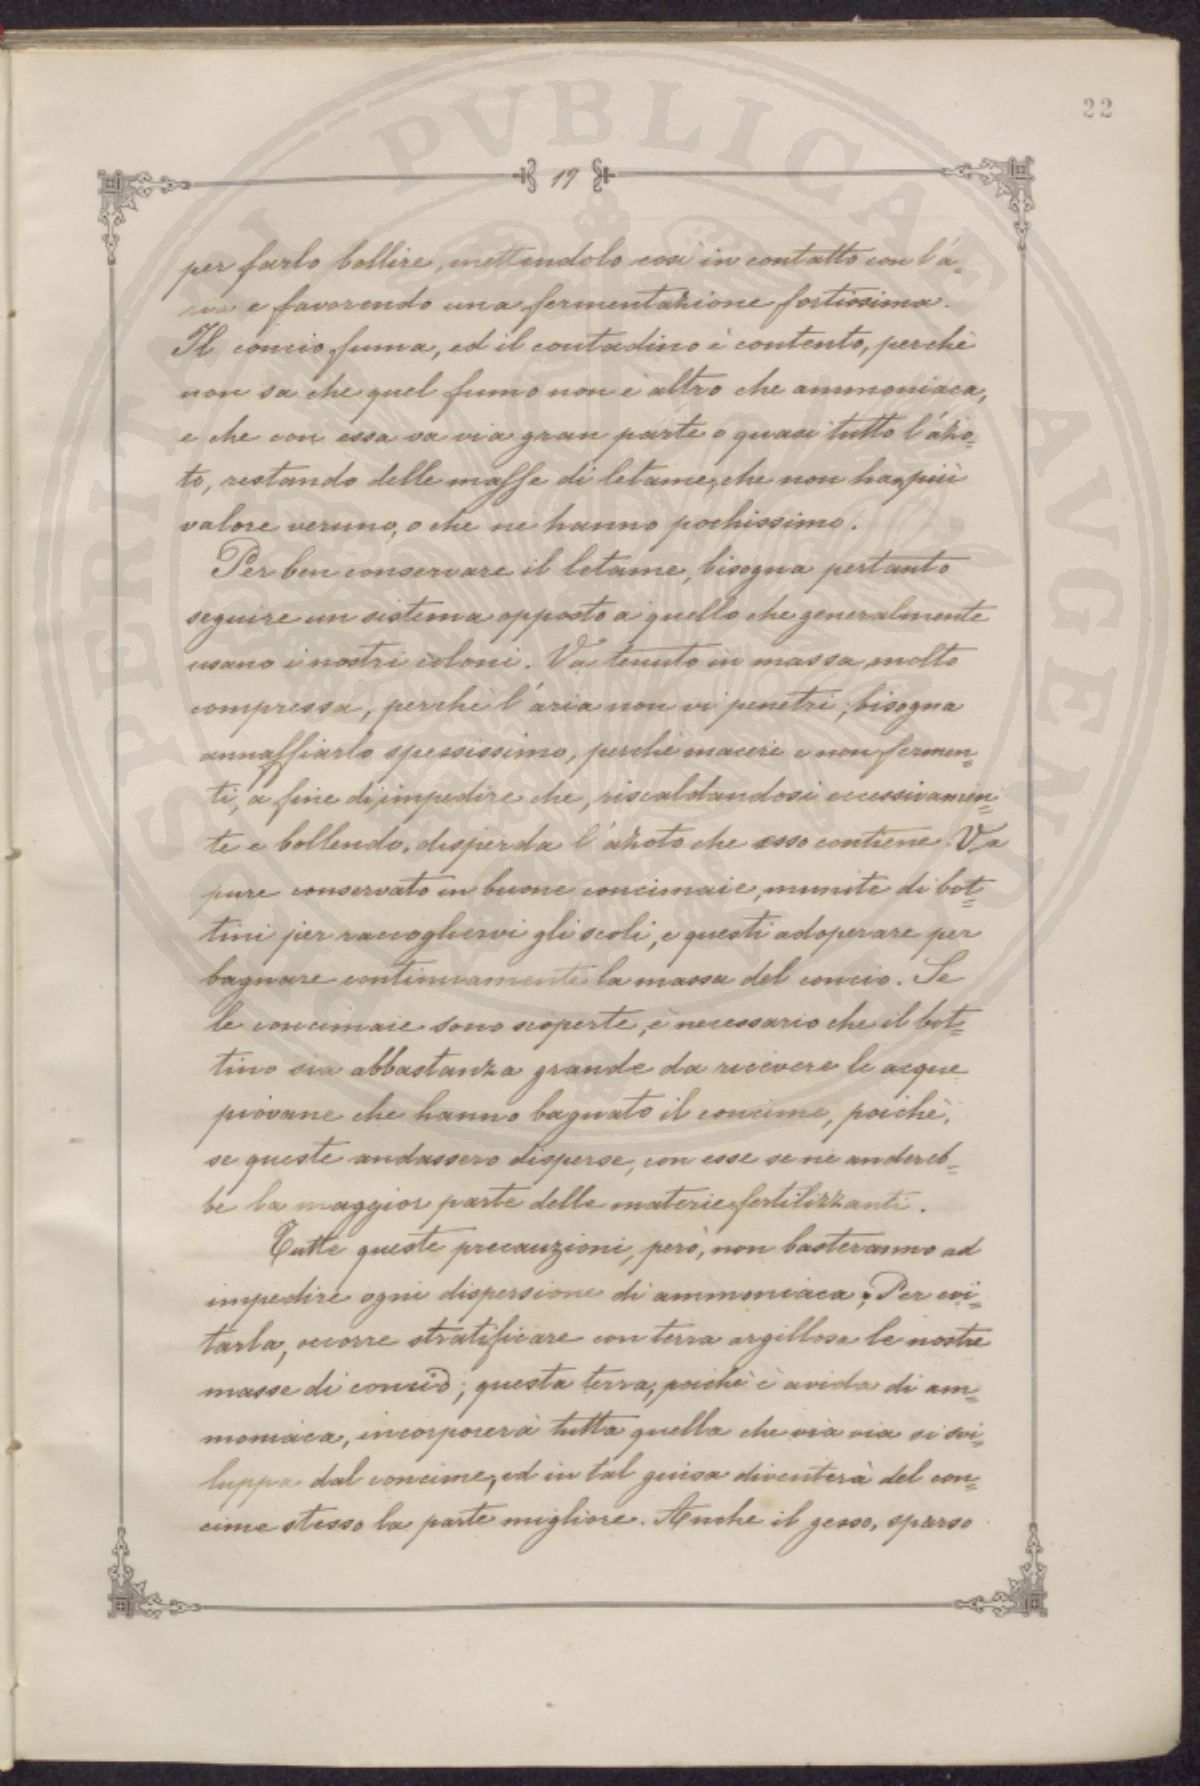 22
17
per farlo bollire, mettendolo così in contatto con l'a-
ria e favorendo una fermentazione fortissima.
Il concio fuma, ed il contadino è contento, perchè
non sa che quel fumo non è altro che ammoniaca,
e che con essa va via gran parte o quasi tutto l'azo-
to, restando delle masse di letame, che non ha più
valore veruno, o che ne hanno pochissimo.
Per ben conservare il letame, bisogna pertanto
seguire un sistema opposto a quello che generalmente
usano i nostri coloni. Va tenuto in massa molto
compressa, perchè l'aria non vi penetri; bisogna
annaffiarlo spessissimo, perchè maceri e non fermen-
ti, a fine di impedire che, riscaldandosi eccessivamen-
te e bollendo, disperda l'azoto che esso contiene. Va
pure conservato in buone concimaie, munite di bot-
tini per raccogliervi gli scoli, e questi adoperare per
bagnare continuamente la massa del concio. Se
le concimaie sono scoperte, è necessario che il bot-
tino sia abbastanza grande da ricevere le acque
piovane che hanno bagnato il concime, poichè,
se queste andassero disperse, con esse se ne andreb-
be la maggior parte delle materie fertilizzanti.
Tutte queste precauzioni, però, non basteranno ad
impedire ogni dispersione di ammoniaca; Per evi-
tarla, occorre stratificare con terra argillosa le nostre
masse di concio; questa terra, poichè è avida di am-
moniaca, incorporerà tutta quella che via via si svi-
luppa dal concime, ed in tal guisa diventerà del con-
cime stesso la parte migliore. Anche il gesso, sparso
SPERITAN PVBLICAE AVGENDO